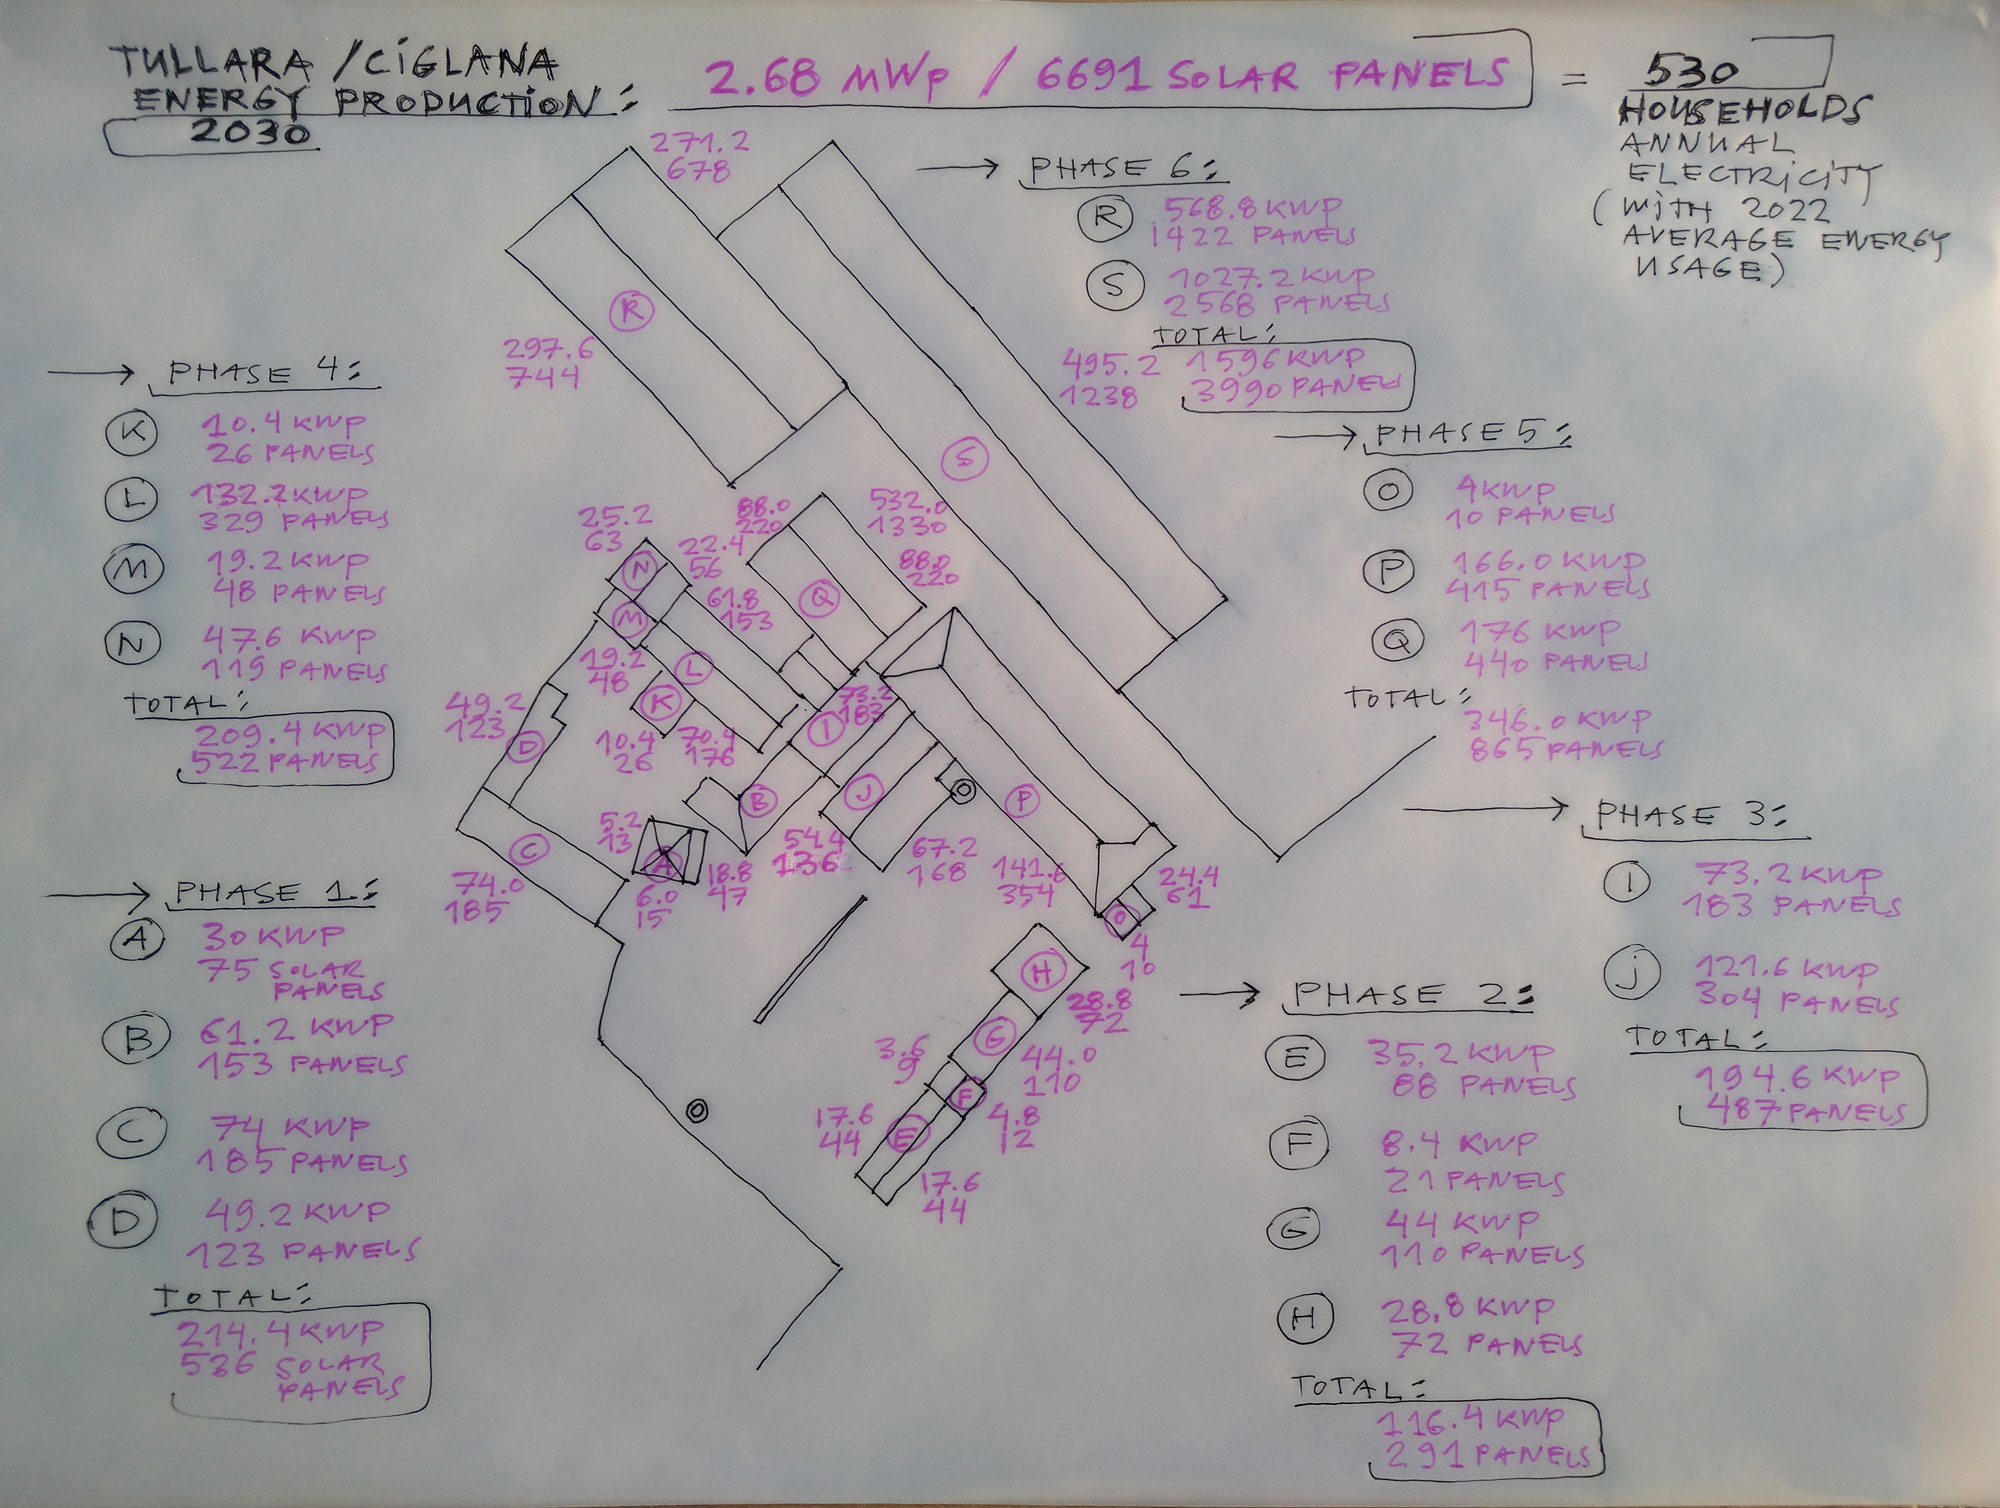 TULLARA / CiGLANA
ENERGY PRODUCTiON:
2030
2.68 MWp / 6691 SOLAR PANELS
=
530
HOUSEHOLDS
ANNUAL
ELECTRiCiTY
(WiTH 2022
AVERAGE ENERGY
USAGE)
271.2
678
R
297.6
744
S
495.2
1238
532.0
1330
PHASE 6:
R
568.8 KWP
1422 PANELS
S
1027.2 KWP
2568 PANELS
TOTAL:
1596 KWP
3990 PANELS
PHASE 4:
K
10.4 KWP
26 PANELS
L
132.2 KWP
329 PANELS
M
19.2 KWP
48 PANELS
N
47.6 KWP
119 PANELS
TOTAL:
209.4 KWP
522 PANELS
PHASE 5:
O
4 KWP
10 PANELS
P
166.0 KWP
415 PANELS
Q
176 KWP
440 PANELS
TOTAL:
346.0 KWP
865 PANELS
25.2
63
N
22.4
56
88.0
220
Q
88.0
220
61.8
153
M
19.2
48
L
K
10.4
26
70.4
176
73.2
183
I
49.2
123
D
B
J
O
P
5.2
13
A
6.0
15
18.8
47
54.4
136
67.2
168
141.6
354
24.4
61
O
4
10
C
74.0
185
H
28.8
72
G
44.0
110
3.6
9
F
4.8
12
17.6
44
E
17.6
44
O
PHASE 1:
A
30 KWP
75 SOLAR
PANELS
B
61.2 KWP
153 PANELS
C
74 KWP
185 PANELS
D
49.2 KWP
123 PANELS
TOTAL:
214.4 KWP
536 SOLAR
PANELS
PHASE 3:
I
73.2 KWP
183 PANELS
J
121.6 KWP
304 PANELS
TOTAL:
194.6 KWP
487 PANELS
PHASE 2:
E
35.2 KWP
88 PANELS
F
8.4 KWP
21 PANELS
G
44 KWP
110 PANELS
H
28.8 KWP
72 PANELS
TOTAL:
116.4 KWP
291 PANELS